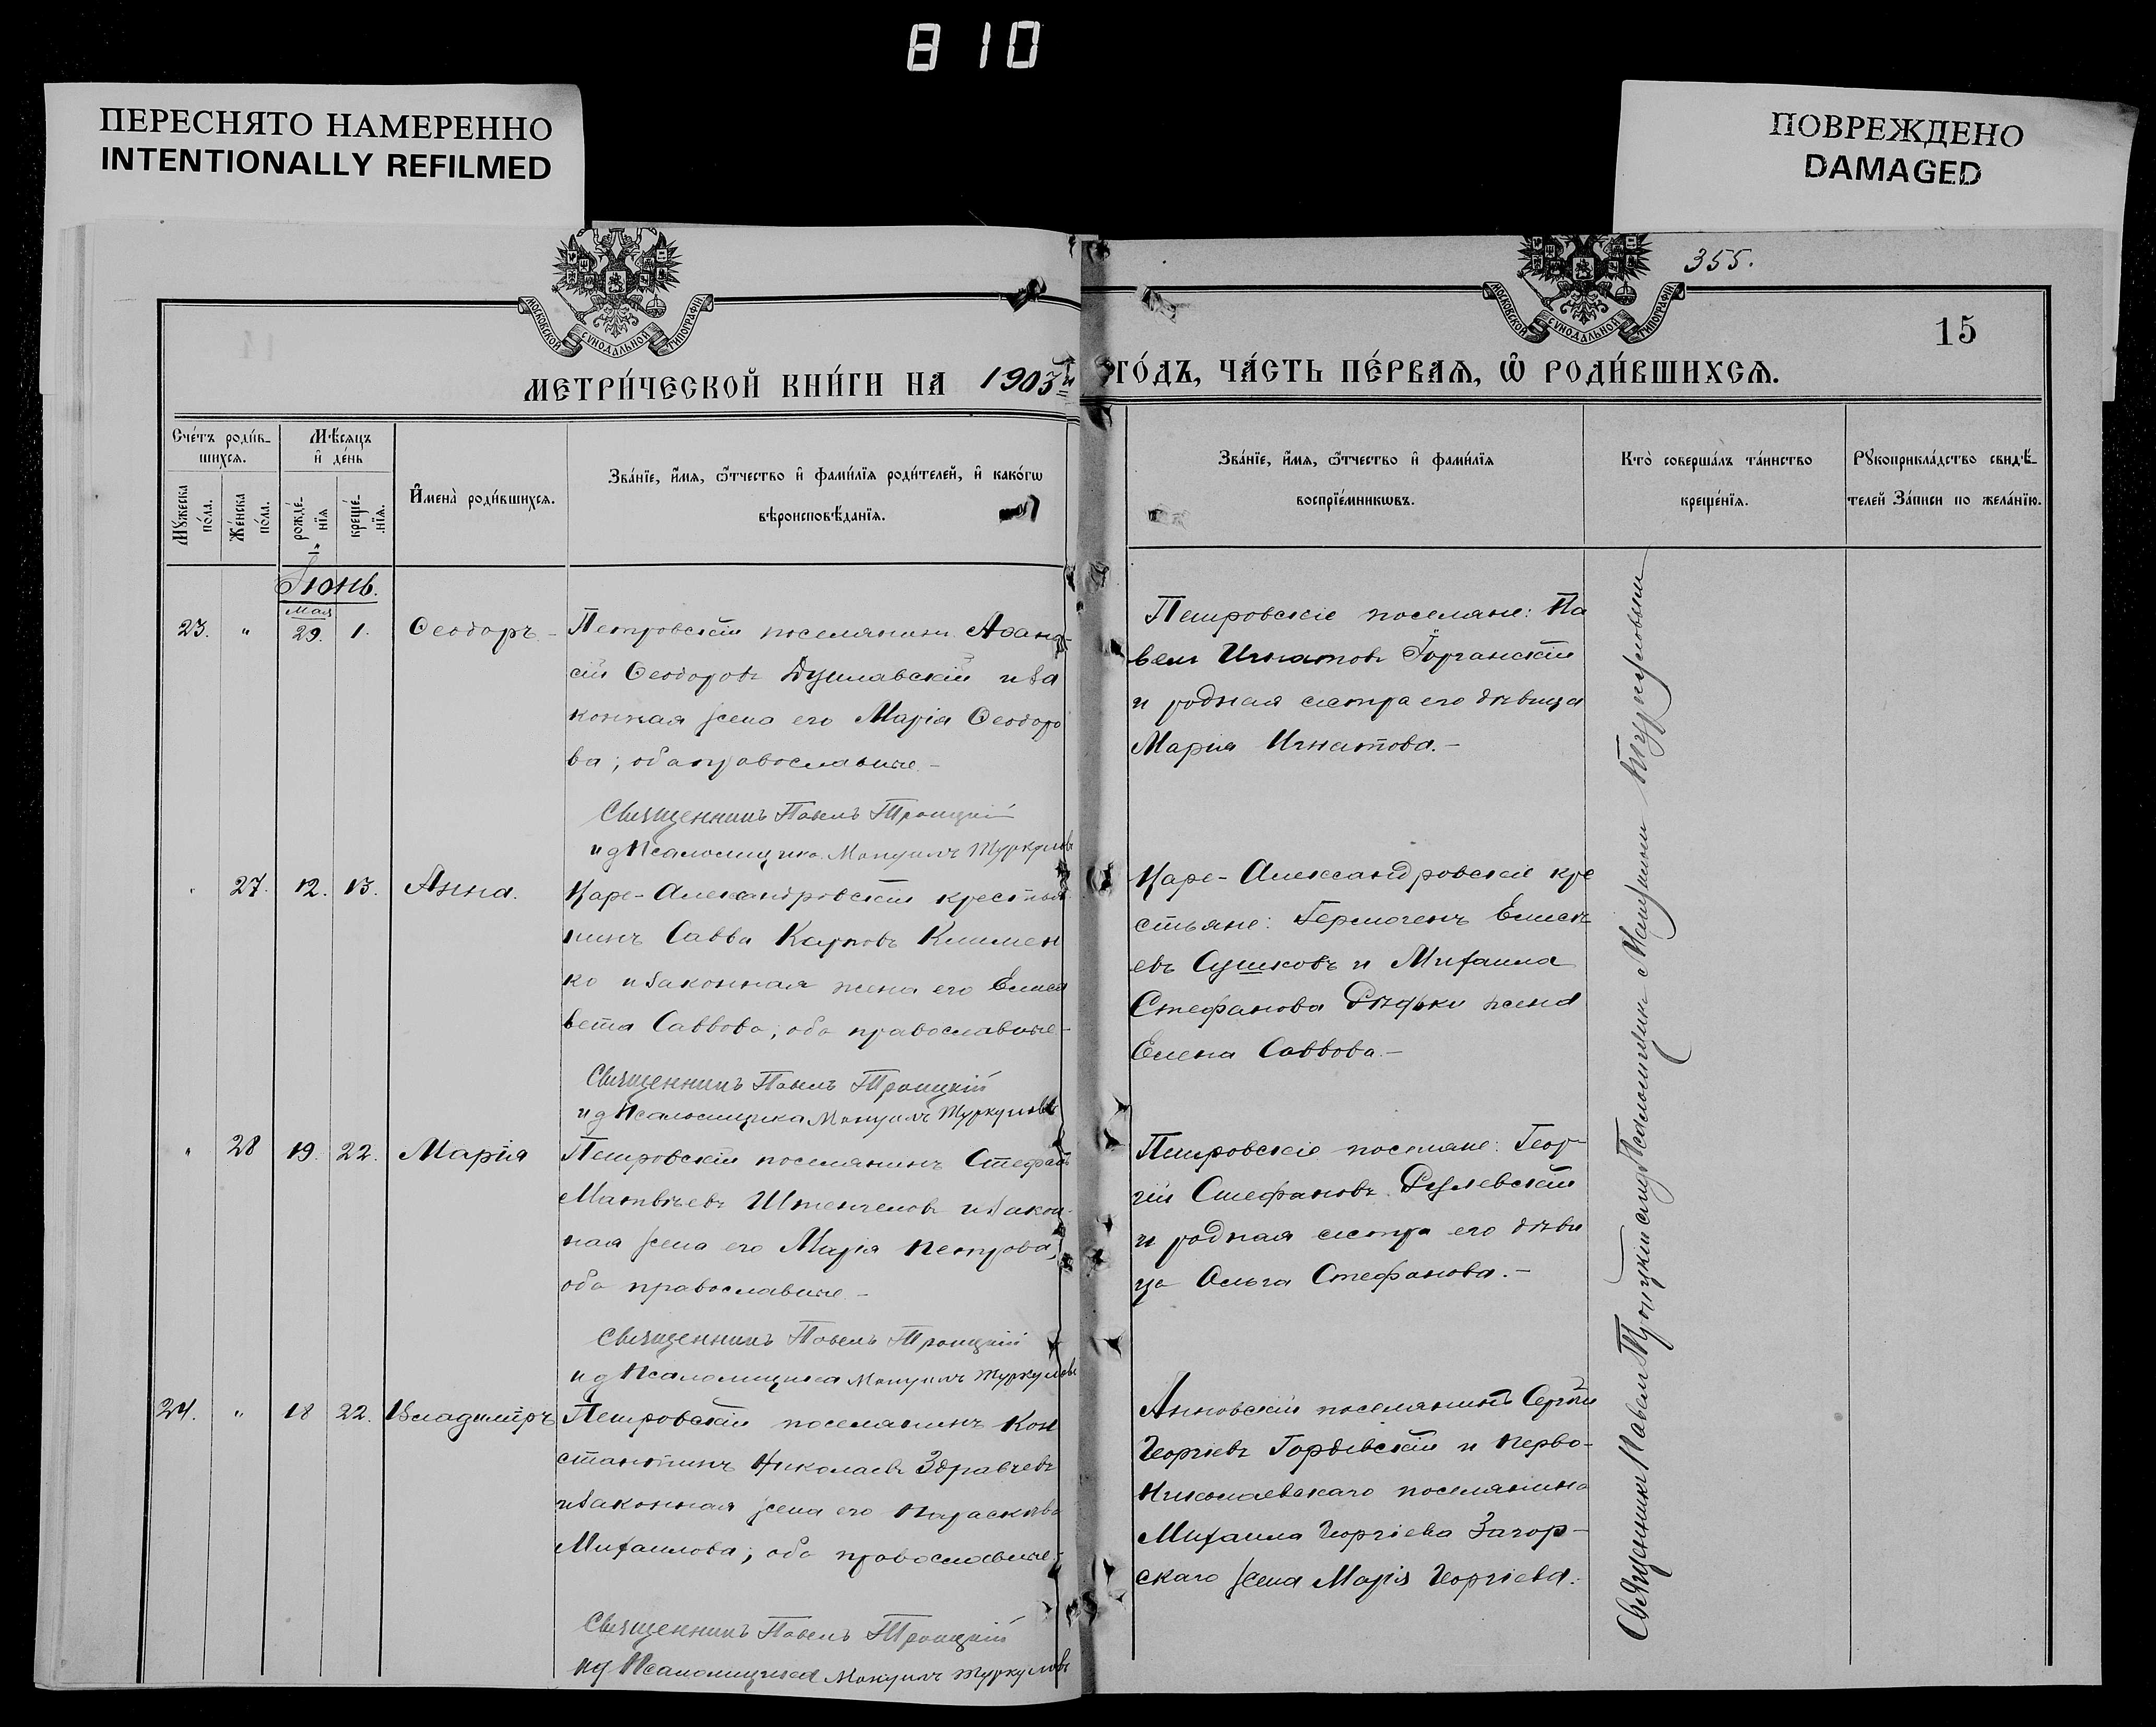 810
ПЕРЕСНЯТО НАМЕРЕННО
INTENTIONALLY REFILMED
ПОВРЕЖДЕНО
DAMAGED
МОСКОВСКОЙ СѴНОДАЛЬНОЙ ТИПОГРАФІИ
МОСКОВСКОЙ СѴНОДАЛЬНОЙ ТИПОГРАФІИ
355.
15
МЕТРИ́ЧЕСКОЙ КНИ́ГИ НА 1903й
ГО́ДЪ, ЧА́СТЬ ПЕ́РВАѦ, Ѡ РОДИ́ВШИХСѦ.
Сче́тъ роди́в-
шихсѧ.
Мѣ́сѧцъ
и҆ де́нь
Мꙋжеска
по́ла.
Же́нска
по́ла.
рожде́-
нїѧ
креще́-
нїѧ.
И҆мена̀ роди́вшихсѧ.
Зва́нїе, и҆́мѧ, ѻ҆́тчество и҆ фами́лїѧ роди́телей, и҆ како́гѡ
вѣроисповѣ́данїѧ.
Зва́нїе, и҆́мѧ, ѻ҆́тчество и҆ фами́лїѧ
воспрїе́мникѡвъ.
Кто̀ соверша́лъ та́инство
креще́нїѧ.
Рꙋкоприкла́дство свидѣ́-
телей За́писи по жела́нїю.
Іюнь.
Мая
23. " 29. 1. Ѳеодоръ.
Петровскій поселянинъ Аѳана-
сій Ѳеодоровъ Душлавскій и за
конная жена его Марія Ѳеодоро
ва; оба православные.-
Священникъ Павелъ Троицкій
и д Псаломщика Мануилъ Туркуловъ
Петровскіе поселяне: Па
велъ Игнатовъ Горганскій
и родная сестра его дѣвица
Марія Игнатова.-
" 27. 12. 13. Анна.
Царе-Александровскій крестья
нинъ Савва Карповъ Климен
ко и законная жена его Елиса
вета Саввова; оба православные-
Священникъ Павелъ Троицкій
и д Псаломщика Мануилъ Туркуловъ
Царе-Александровскіе кре
стьяне: Гермогенъ Елисѣ
евъ Сушковъ и Михаила
Стефанова жена
Елена Саввова.-
" 28 19. 22. Марія
Петровскій поселянинъ Стефанъ
Матвѣевъ и закон-
ная жена его Марія Петрова,
оба православные.-
Священникъ Павелъ Троицкій
и д Псаломщика Мануилъ Туркуловъ
Петровскіе поселяне: Геор-
гій Стефановъ Рулевскій
и родная сестра его дѣви
ца Ольга Стефанова.-
24. " 18 22. Владиміръ
Петровскій поселянинъ Кон
стантинъ Николаевъ Здравчевъ
и законная жена его Параскева
Михаилова; оба православные.-
Священникъ Павелъ Троицкій
ид Псаломщика Мануилъ Туркуловъ
Анновскій поселянинъ Сергій
Георгіевъ Гордѣвскій и Перво-
Николаевскаго поселянина
Михаила Георгіева Загор-
скаго жена Марія Георгіева.
Священникъ Павелъ Троицкій съ и д Псаломщика Мануиломъ Туркуловымъ